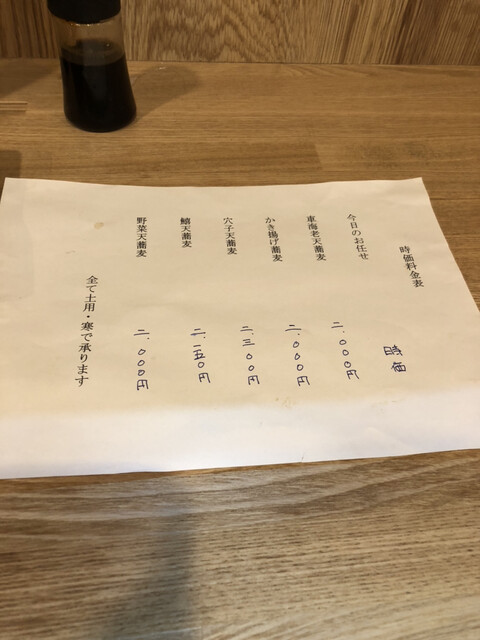 時価料金表
今日のお任せ 時価
車海老天蕎麦 二、〇〇〇円
かき揚げ蕎麦 二、〇〇〇円
穴子天蕎麦 二、三〇〇円
鱚天蕎麦 二、一五〇円
野菜天蕎麦 二、〇〇〇円
全て土用・寒で承ります